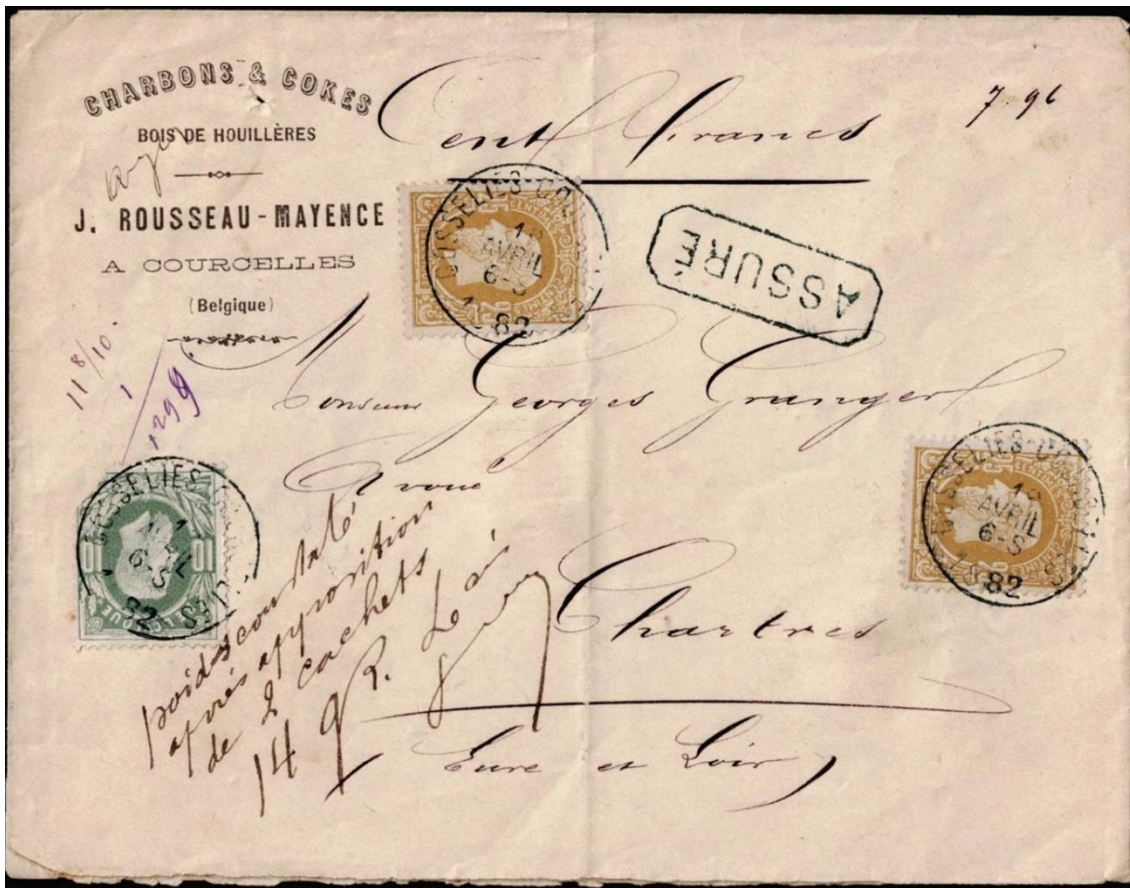 CHARBONS & COKES
BOIS DE HOUILLÈRES
J. ROUSSEAU-MAYENCE
A COURCELLES
(Belgique)
Cent francs
7.96
GOSSELIES-
AVRIL
6-S
82
ASSURÉ
11 8/10.
1
Monsieur Georges Grangert
Avoué
Chartres
Eure et Loir
GOSSELIES-
6-S
82
10
10
GOSSELIES-
AVRIL
6-S
82
poids constaté
après apposition
de 2 cachets
14 gR.